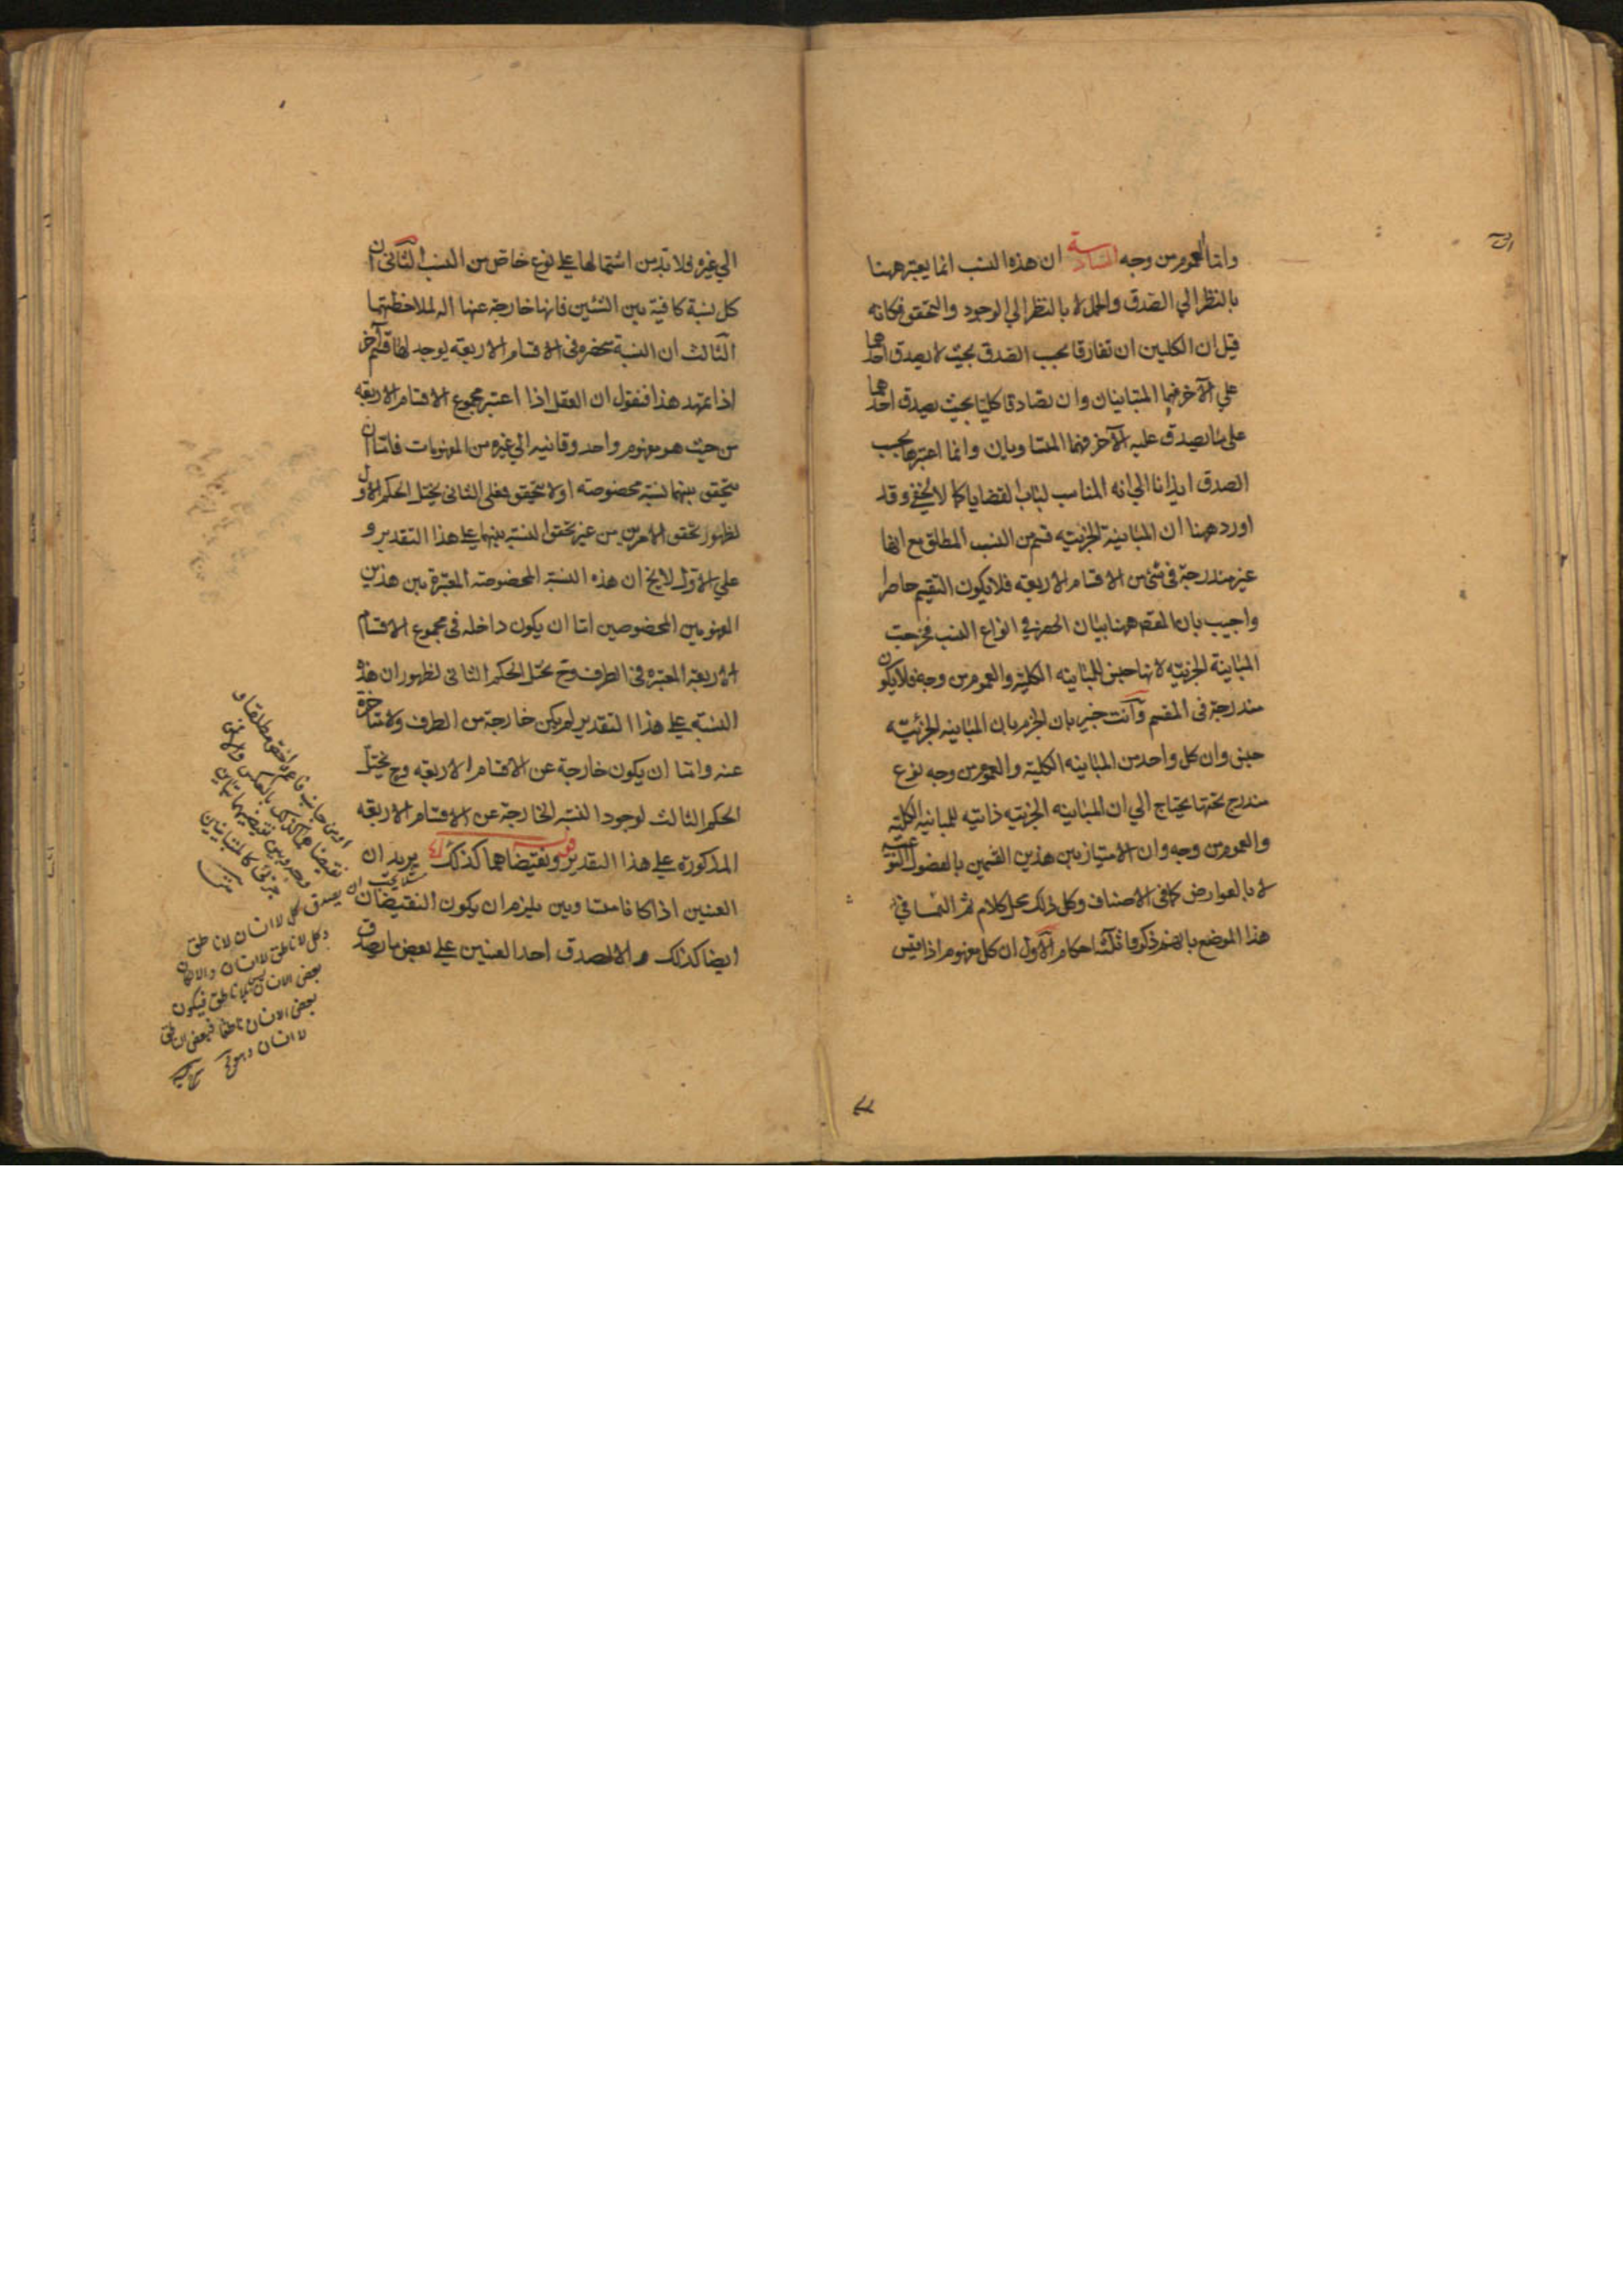 واما العموم من وجه السادسة ان هذه النسب انما يعتبر ههنا
بالنظر الي الصدق والحمل لا بالنظر الي الوجود والتحقق فكانه
قيل ان الكليين ان تفارقا بحسب الصدق بحيث لا يصدق احدهما
علي الآخر فهما المتباينان وان تصادقا كليا بحيث يصدق احدهما
على ما يصدق عليه الآخر فهما المتساويان وانما اعتبرها بحسب
الصدق ايذانا الي انه المناسب لباب القضايا كما لا يخفي وقد
اورد ههنا ان المباينة الجزئيه قسم من النسب المطلق مع انها
غير مندرجة في شئ من الاقسام الاربعه فلا يكون التقسيم حاصرا
واجيب بان المقصم ههنا بيان الحصر في انواع النسب فخرجت
المباينة الجزئيه لانها جنس للمباينه الكلية والعموم من وجه فلا يكون
مندرجة في المقسم وأنت خبير بان الجزم بان المباينه الجزئيه
جنس وان كل واحد من المباينه الكلية والعموم من وجه نوع
مندرج تحتها يحتاج الي ان المباينه الجزئيه ذاتيه للمباينه الكلية
والعموم من وجه وان الامتياز بين هذين القسمين بالفصول النوعيه
لا بالعوارض كما في الاصناف وكل ذلك محل كلام ثم
هذا الموضع ذكروا ثلثة احكام الأول ان كل مفهوم اذا قيس
الي غيره فلا بد من اشتمالها علي نوع خاص من النسب الثاني ان
كل نسبة كافية بين الشئين فانها خارجة عنها الة لملاحظتهما
الثالث ان النسبة منحصره في الاقسام الاربعه يوجد لها قسم آخر
اذا تمهد هذا فنقول ان العقل اذا اعتبر مجموع الاقسام الاربعه
من حيث هو مفهوم واحد وقاسه الي غيره من المفهومات فاما ان
يتحقق بينهما نسبة مخصوصه او لا يتحقق فعلى الثاني يختل الحكم الاول
لظهور تحقق الامرين من غير تحقق النسبة بينهما علي هذا التقدير و
علي الاول لا يخ ان هذه النسبة المخصوصه المعتبرة بين هذين
المفهومين المخصوصين اما ان يكون داخله في مجموع الاقسام
الاربعة المعتبره في الطرف وح يختل الحكم الثاني لظهور ان هذه
النسبه علي هذا التقدير لم يكن خارجة من الطرف ولا متاخرة
عنه واما ان يكون خارجة عن الاقسام الاربعه وح يختل
الحكم الثالث لوجود النسبة الخارجة عن الاقسام الاربعه
المذكورة علي هذا التقدير قوله ونقيضاهما كذلك يريد ان
العينين اذا كانا متساويين يلزم ان يكون النقيضان
ايضا كذلك والا لصدق احد العينين علي بعض ما يصدق
نقيضاهما كذلك بالعكس
وبين نقيضيهما تباين
جزئي كالمتباينين
يصدق كل لا انسان لا ناطق
وكل لا ناطق لا انسان والا لكان
بعض الانسان لا ناطق فيكون
بعض الانسان ناطقا فبعض الناطق
لا انسان وهو